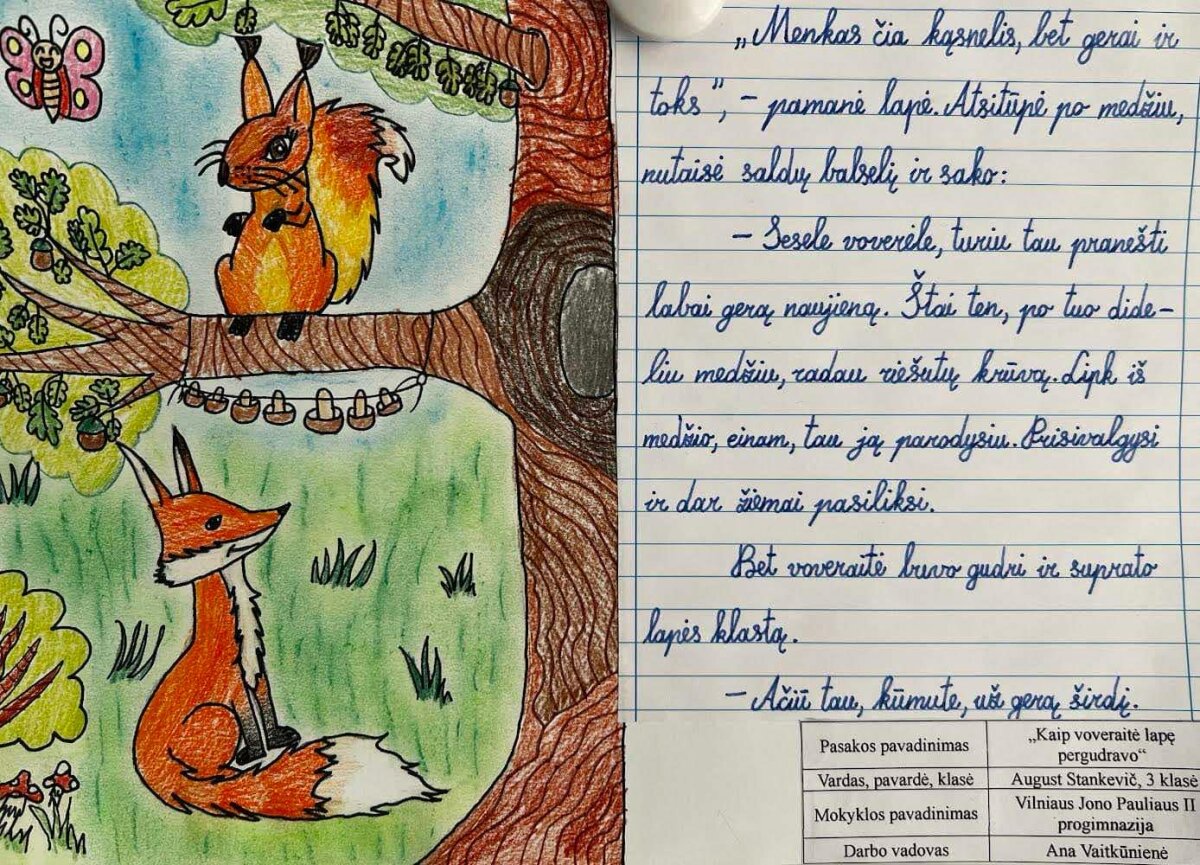 „Menkas čia kąsnelis, bet gerai ir
toks”, – pamanė lapė. Atsitūpė po medžiu,
nutaisė saldų balselį ir sako:
– Sesele voverėle, turiu tau pranešti
labai gerą naujieną. Štai ten, po tuo dide-
liu medžiu, radau riešutų krūvą. Lipk iš
medžio, einam, tau ją parodysiu. Prisivalgysi
ir dar žiemai pasiliksi.
Bet voveraitė buvo gudri ir suprato
lapės klastą.
– Ačiū tau, kūmute, už gerą širdį.
Pasakos pavadinimas
„Kaip voveraitė lapę
pergudravo“
Vardas, pavardė, klasė
August Stankevič, 3 klasė
Mokyklos pavadinimas
Vilniaus Jono Pauliaus II
progimnazija
Darbo vadovas
Ana Vaitkūnienė